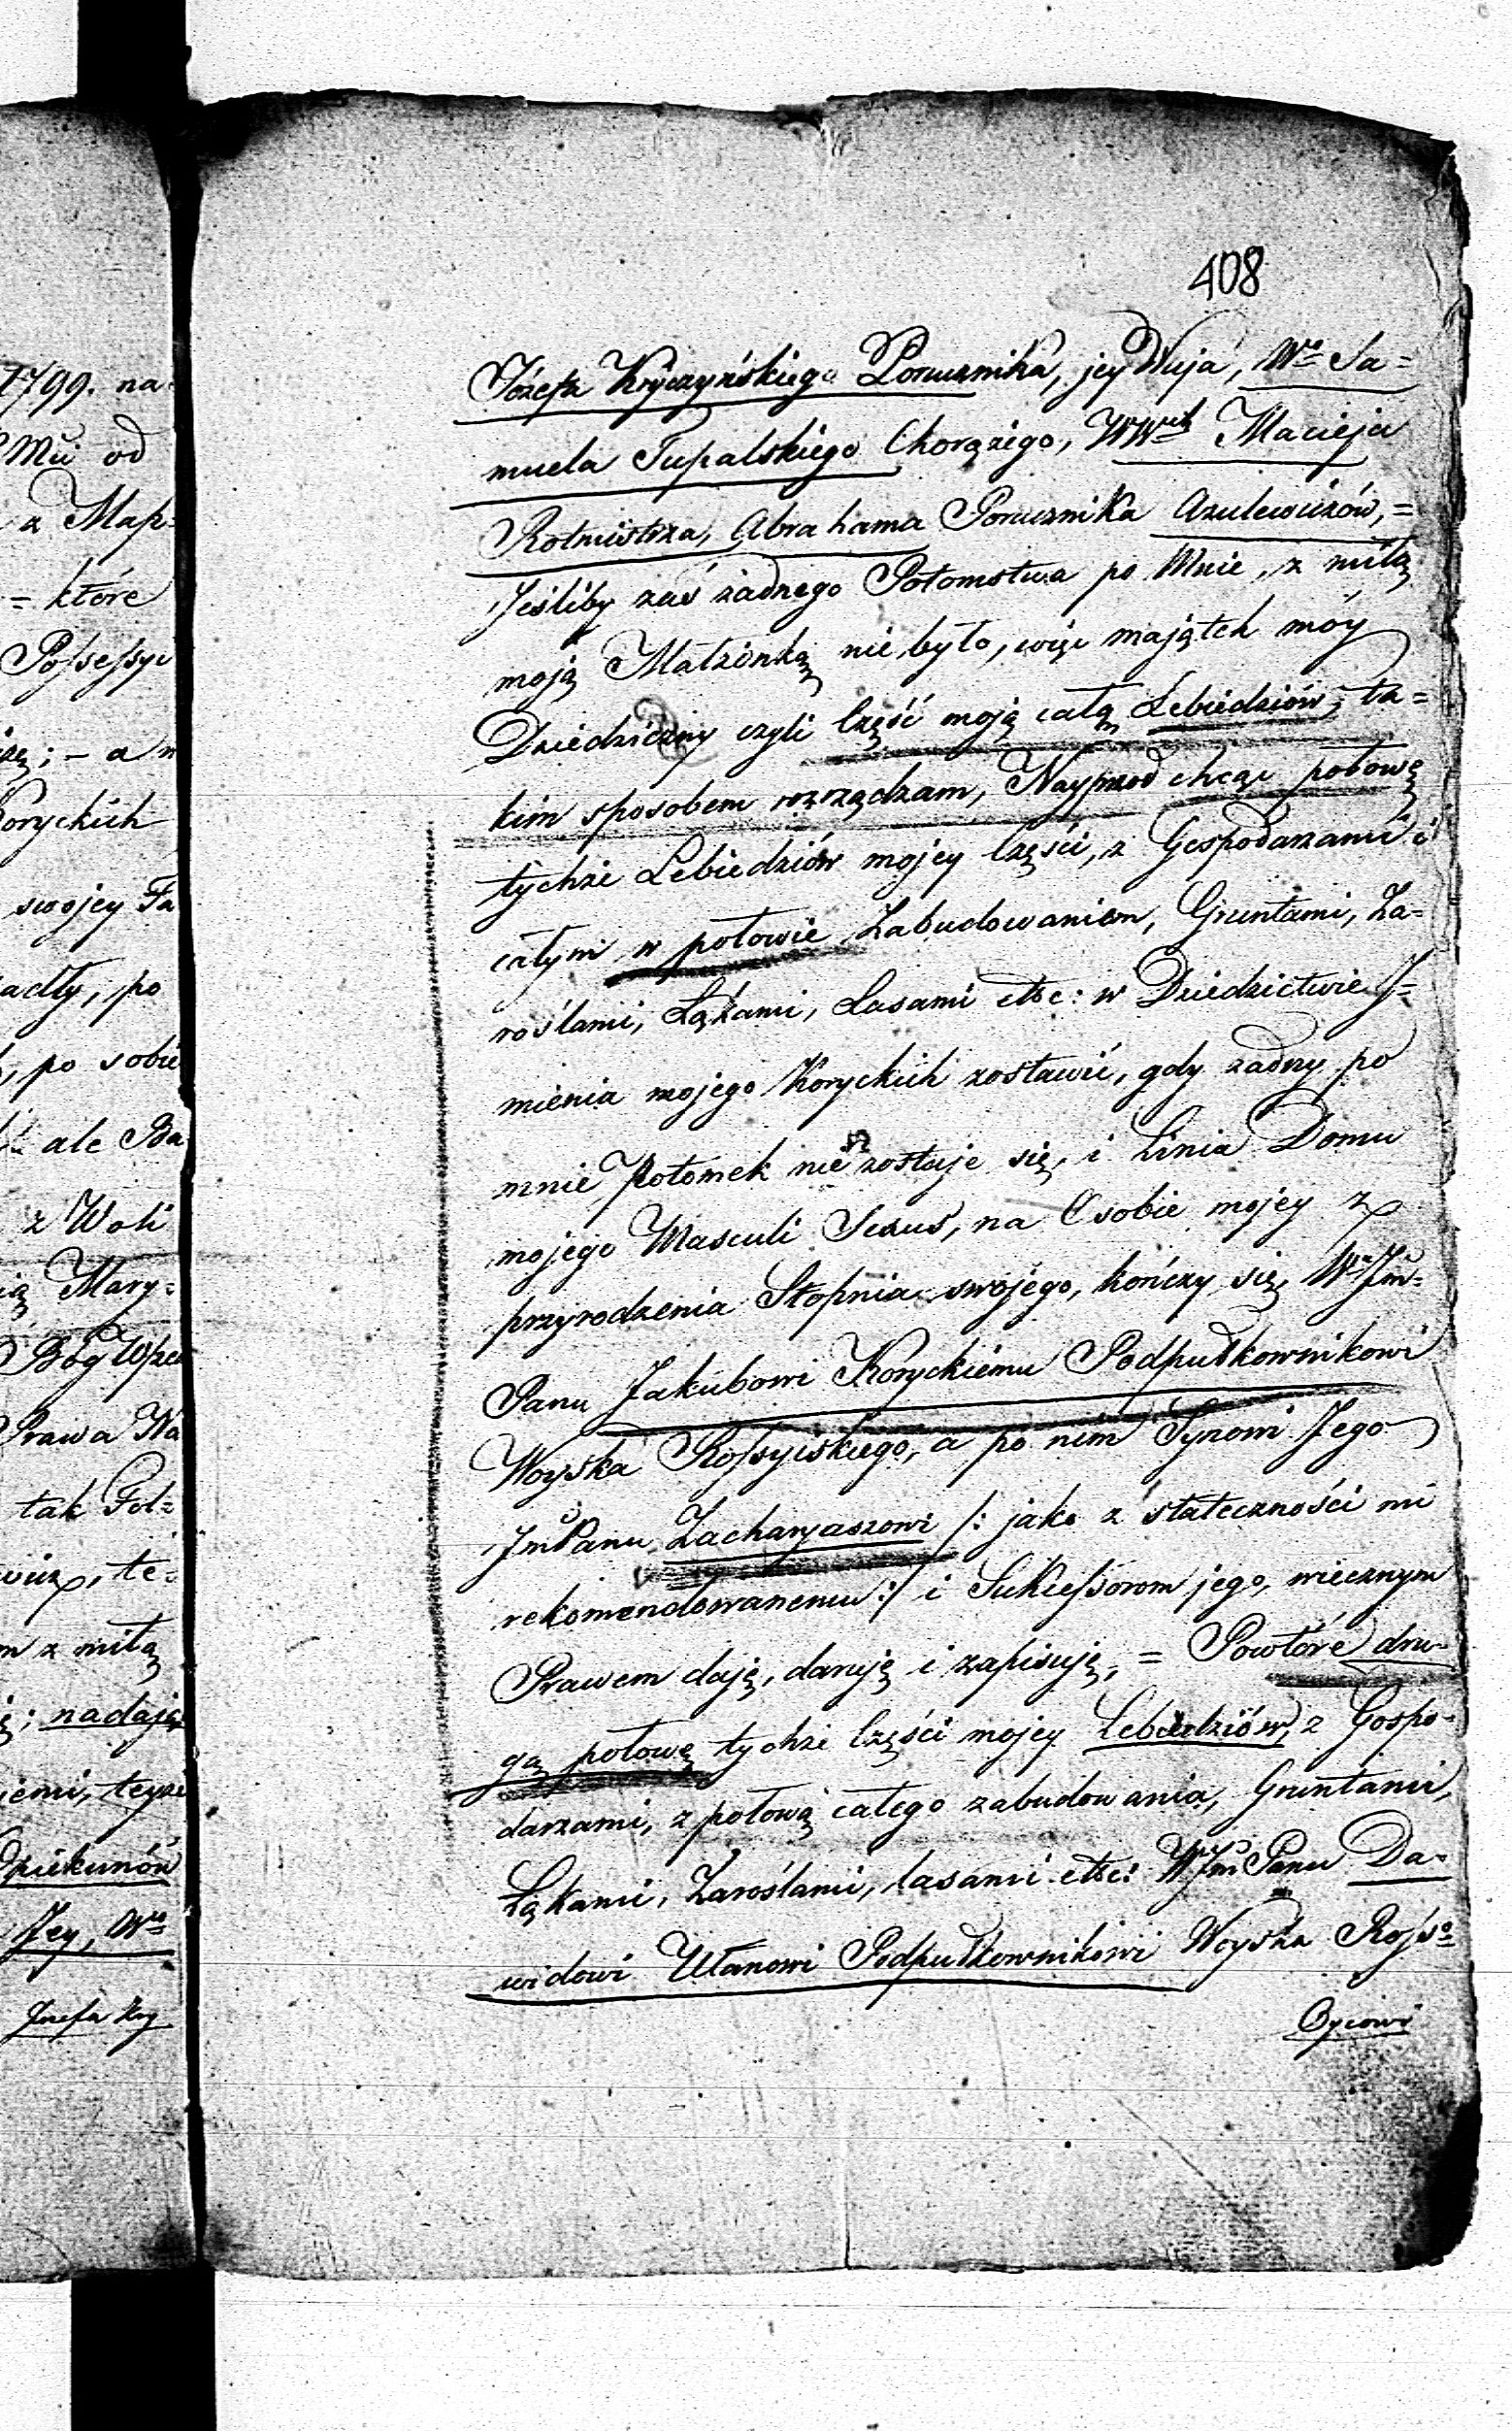 408
Józefa Kryczyńskiego Porucznika, jey Wuja, Wo Sa=
muela Tupalskiego Chorążego, WWch Macieja
Rotmistrza, Abrahama Porucznika Azulewiczów, =
Jeśliby zaś żadnego Potomstwa po Mnie, z miłą
moją Małżonką nie było, więc majątek móy
Dziedziczny czyli Część moją całą Lebiedziów, ta=
kim sposobem rozrządzam, Nayprzod chcąc połowę
tychże Lebiedziów mojey Części, z Gospodarzami i
całym w połowie Zabudowaniem, Gruntami, Za=
roślami, Łąkami, Lasami etc: w Dziedzictwie J=
mienia mojego Koryckich zostawić, gdy żadny po
mnie Potomek nie zostaje się, i Linia Domu
mojego Masculi Sexus, na Osobie mojey z
przyrodzenia Stopnia swojego, kończy się, Wu Jm=
Panu Jakubowi Koryckiemu Podpułkownikowi
Woyska Rossyiskiego, a po nim Synowi Jego
JmPanu Zacharyaszowi /: jako z stateczności mi
rekomendowanemu :/ i Sukcessorom jego, wiecznym
Prawem daję, daruję i zapisuję, = Powtóre dru=
gą połowę tychże Części mojey Lebiedziów, z Gospo=
darzami, z połową całego zabudowania, Gruntami,
Łąkami, Zaroślami, lasami etc: WJm Panu Da=
widowi Ułanowi Podpułkownikowi Woyska Rosso
Oycowi
1799. na
Mu od
z Map=
= które
Possessyi
; – a n
Koryckich
swojey Fa
adły, po
, po sobie
ale Ba
z Woli
ią Mary=
Bóg Wsze
Prawa Na
tak Fol=
wicz, te=
m z miłą
; nadaję
iemi, teyże
Opiekunów
Jey, Wo
Jozefa Kry